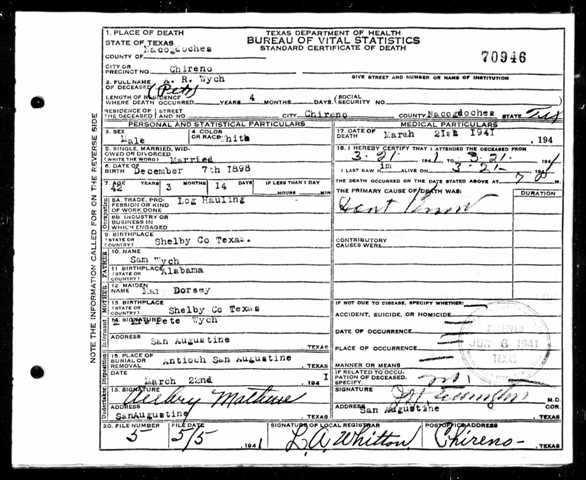 TEXAS DEPARTMENT OF HEALTH
BUREAU OF VITAL STATISTICS
STANDARD CERTIFICATE OF DEATH
70946
1. PLACE OF DEATH
STATE OF TEXAS
COUNTY OF Nacogdoches
CITY OR
PRECINCT NO. Chireno
GIVE STREET AND NUMBER OR NAME OF INSTITUTION
2. FULL NAME
OF DECEASED A. R. Wych
(Pete)
LENGTH OF RESIDENCE
WHERE DEATH OCCURRED YEARS 4 MONTHS DAYS SOCIAL SECURITY
RESIDENCE OF THE DECEASED STREET AND NO. CITY Chireno COUNTY Nacogdoches STATE Tex
PERSONAL AND STATISTICAL PARTICULARS
3. SEX Male
4. COLOR OR RACE White
5. SINGLE, MARRIED, WIDOWED OR DIVORCED
(WRITE THE WORD) Married
6. DATE OF BIRTH December 7th 1898
7. AGE 42 YEARS 3 MONTHS 14 DAYS IF LESS THAN 1 DAY
HOURS MIN.
8A. TRADE, PROFESSION OR KIND OF WORK DONE Log Hauling
8B. INDUSTRY OR BUSINESS IN WHICH ENGAGED
9. BIRTHPLACE
(STATE OR COUNTRY) Shelby Co Texas.
10. NAME
Sam Wych
11 BIRTHPLACE
(STATE OR COUNTRY) Alabama
12 MAIDEN NAME Dorsey
13 BIRTHPLACE
(STATE OR COUNTRY) Shelby Co Texas
14 SIGNATURE Mrs Pete Wych
ADDRESS
San Augustine TEXAS
15. PLACE OF BURIAL OR REMOVAL Antioch San Augustine TEXAS
DATE
March 22nd 194 1
16. SIGNATURE
ADDRESS
SanAugustine TEXAS
MEDICAL PARTICULARS
17. DATE OF DEATH Marah 21st 1941 , 194
18. I HEREBY CERTIFY THAT I ATTENDED THE DECEASED FROM
3-21- 1941 TO 3-21- 194
I LAST SAW H im ALIVE ON 3-21- 194
THE DEATH OCCURRED ON THE DATE STATED ABOVE AT
THE PRIMARY CAUSE OF DEATH WAS:
DURATION
CONTRIBUTORY CAUSES WERE:
IF NOT DUE TO DISEASE, SPECIFY WHETHER:
ACCIDENT, SUICIDE, OR HOMICIDE
DATE OF OCCURRENCE
PLACE OF OCCURRENCE
JUN 6 1941
TEXAS
MANNER OR MEANS
IF RELATED TO OCCUPATION OF DECEASED, SPECIFY
SIGNATURE M.D.
ADDRESS San Augustine TEXAS
20. FILE NUMBER 5
FILE DATE 5/5 , 1941
SIGNATURE OF LOCAL REGISTRAR L.A. Whitton
POSTOFFICE ADDRESS Chireno- TEXAS
NOTE THE INFORMATION CALLED FOR ON THE REVERSE SIDE
Occupation
FATHER
MOTHER
Informant
Undertaker Disposition